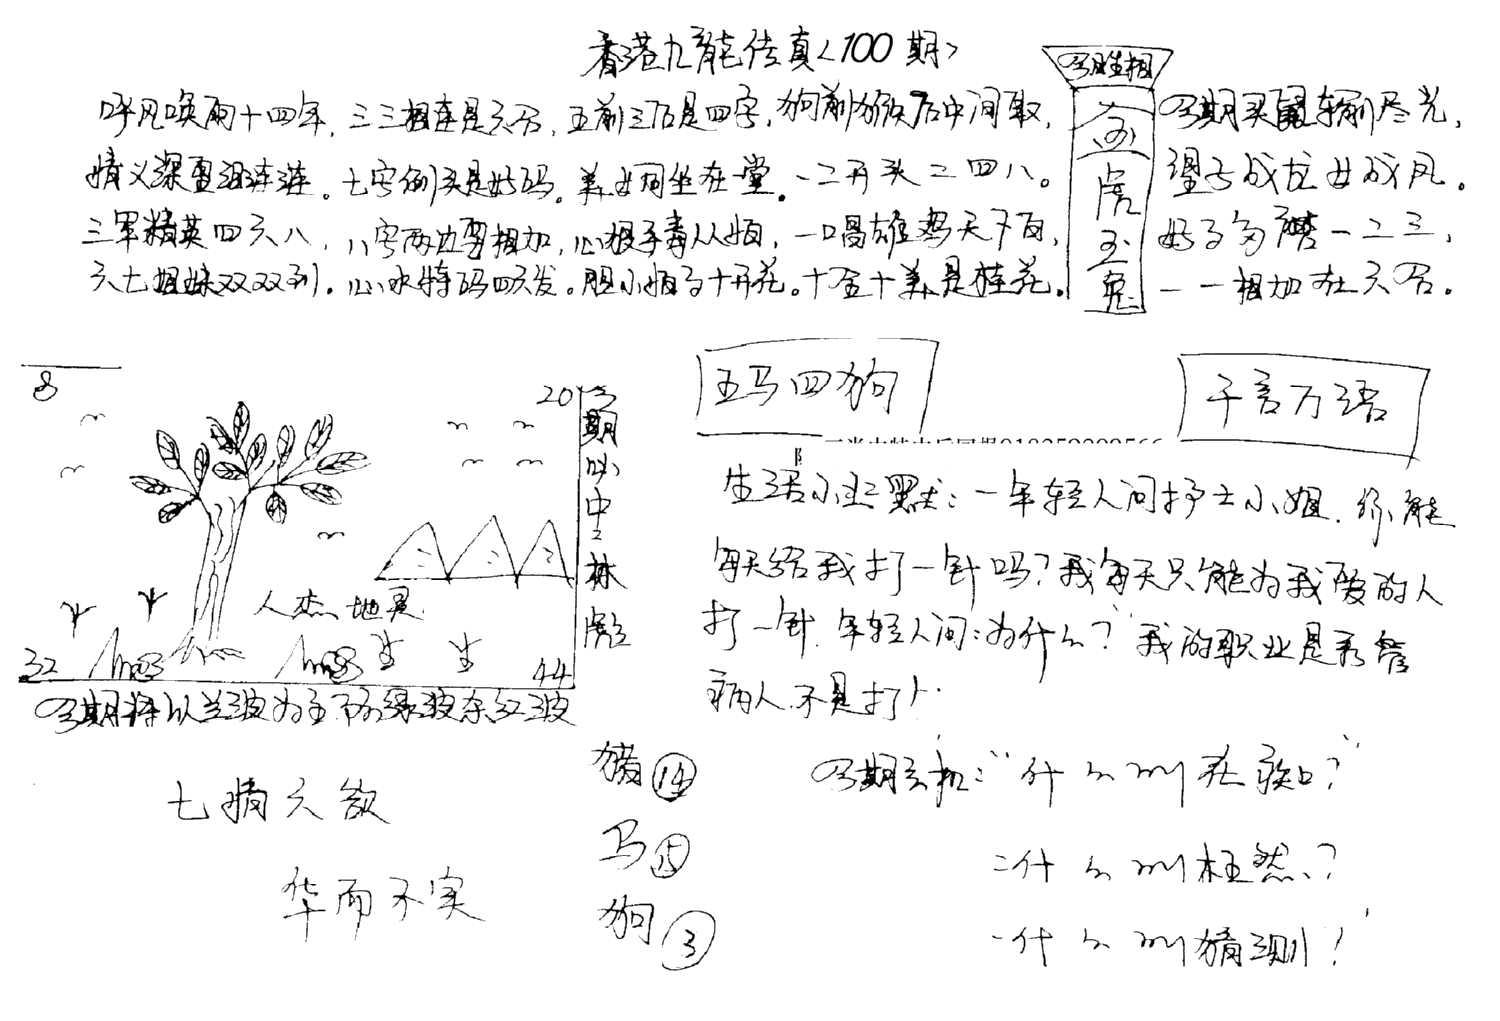 香港九龙传真<100期>
今期生相
金虎玉兔
呼风唤雨十四年，三三相连是六合，五前三后是四字，狗前猴后中间取，
情义深重泪连连。七字倒头是好码。美女同坐在一堂。一二开头二四八。
三军精英四六八，八字两边要相加，心狠手毒从姐，一唱雄鸡天下白，
六七姐妹双双到。心水特码四六发。胆小姐子十开花。十全十美是桂花。
今期买鼠输剃尽光，
望子成龙女成凤。
好事多磨一二三，
一一相加在六合。
8
20
32
44
人杰地灵
今期必中林彪
今期特以兰波为主下防绿波杀红波
五马四狗
千言万语
生活小幽默：一年轻人问护士小姐，你能
每天给我打一针吗？我每天只能为我爱的人
打一针，年轻人问：为什么？我的职业是看管
病人不是打人
七情六欲
华而不实
猪 14
马 15
狗 3
今期玄机：“什么叫在缺口？”
二什么叫枉然？
一什么叫猜测！